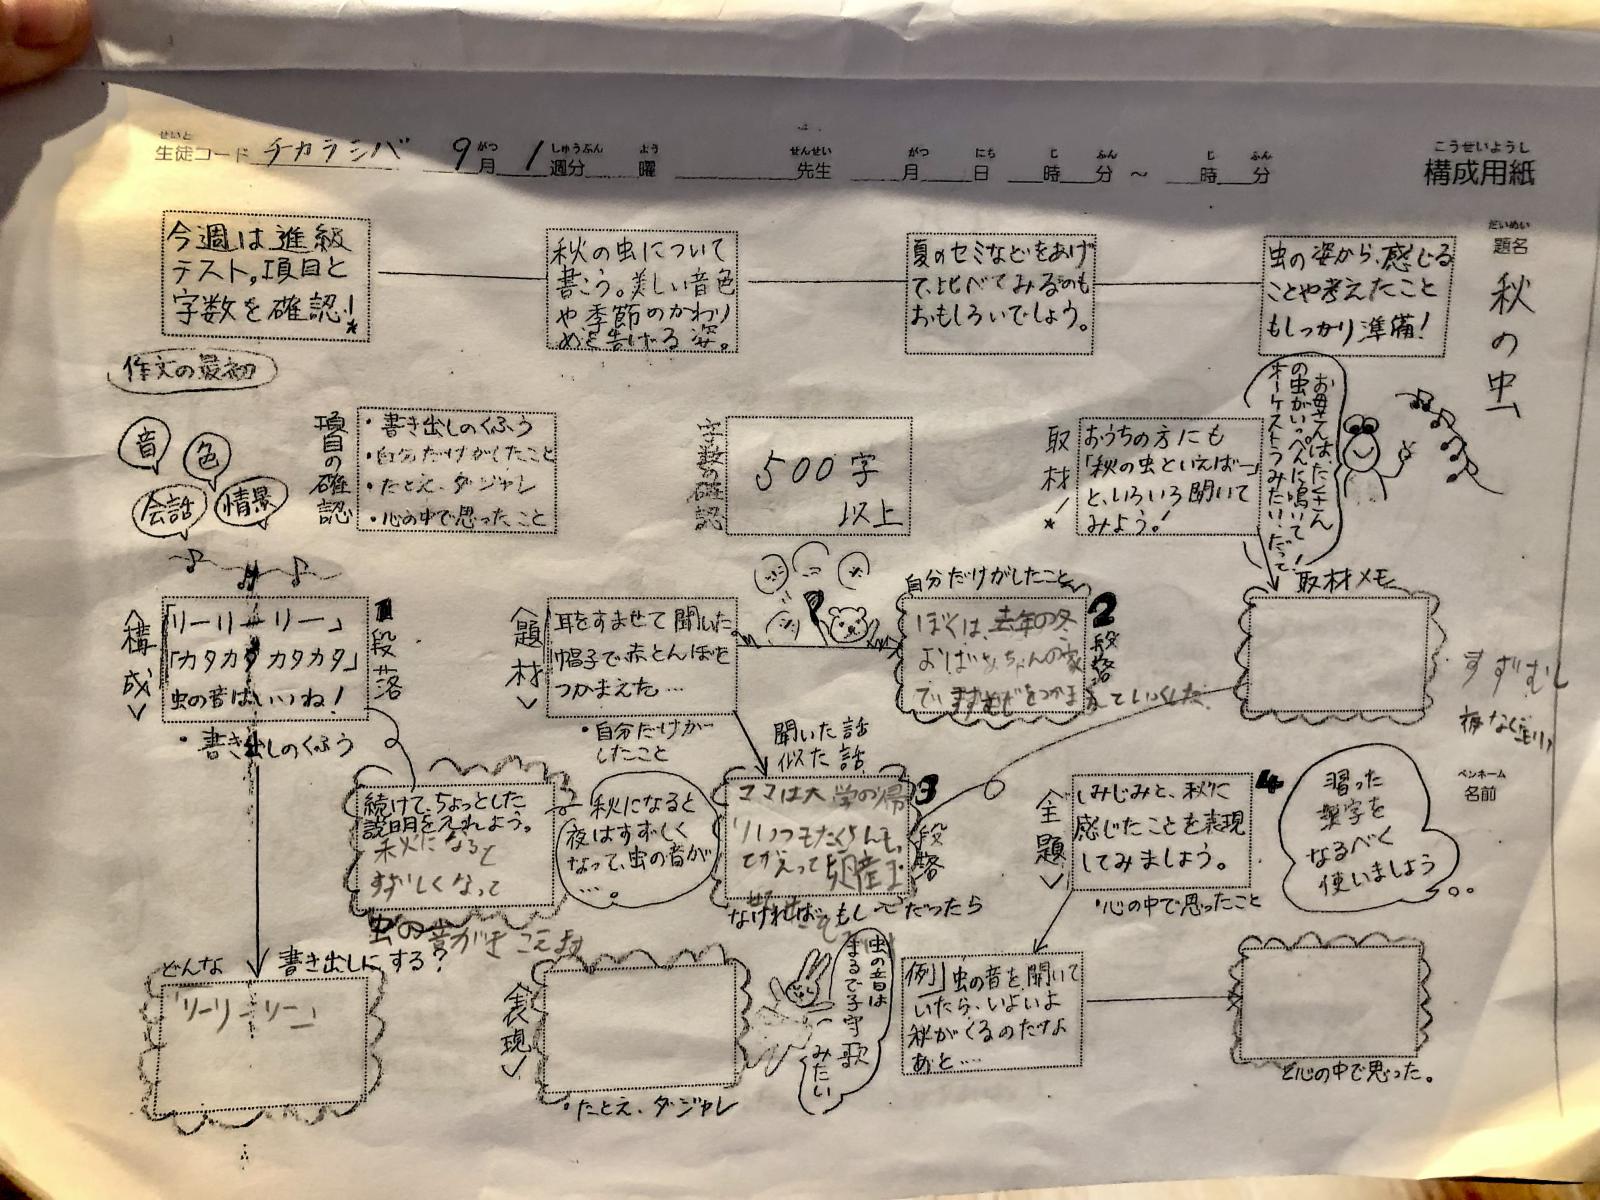 せいと
生徒コード チカラシバ 9月 1週分 曜 先生 月 日 時 分 ～ 時 分
がつ しゅうぶん よう せんせい がつ にち じ ふん じ ふん
こうせいようし
構成用紙
だいめい
題名
秋の虫
今週は進級
テスト。項目と
字数を確認！
秋の虫について
書こう。美しい音色
や季節のかわり
めを告げる姿。
夏のセミなどをあげ
て、比べてみるのも
おもしろいでしょう。
虫の姿から、感じる
ことや考えたこと
もしっかり準備！
作文の最初
音
色
会話
情景
項目の確認
・書き出しのくふう
・自分だけがしたこと
・たとえ、ダジャレ
・心の中で思ったこと
字数の確認
500字
以上
取材！
おうちの方にも
「秋の虫といえば…」
と、いろいろ聞いて
みよう！
お母さんは、たくさん
の虫がいっぺんに鳴いて
オーケストラみたい、だって！
〈構成〉
「リーリーリー」
「カタカタ カタカタ」
虫の音はいいね！
1段落
・書き出しのくふう
〈題材〉
耳をすませて聞いた
帽子で赤とんぼを
つかまえた…
・自分だけが
したこと
自分だけがしたこと
ぼくは、去年の冬
おばあちゃんの家
で
2段落
取材メモ
すずむし
続けて、ちょっとした
説明を入れよう。
秋になると
すずしくなって
虫の音がきこえます
秋になると
夜はすずしく
なって、虫の音が
…。
聞いた話
似た話
ママは大学の帰
りいつもたくさん
3段落
なければ もし だったら
〈主題〉
しみじみと、秋に
感じたことを表現
してみましょう。
4
・心の中で思ったこと
習った
漢字を
なるべく
使いましょう
ペンネーム
名前
どんな書き出しにする？
「リーリーリー」
〈表現〉
・たとえ、ダジャレ
虫の音は
まるで子守歌
みたい
例」虫の音を聞いて
いたら、いよいよ
秋がくるのだなよ
あと…
と心の中で思った。